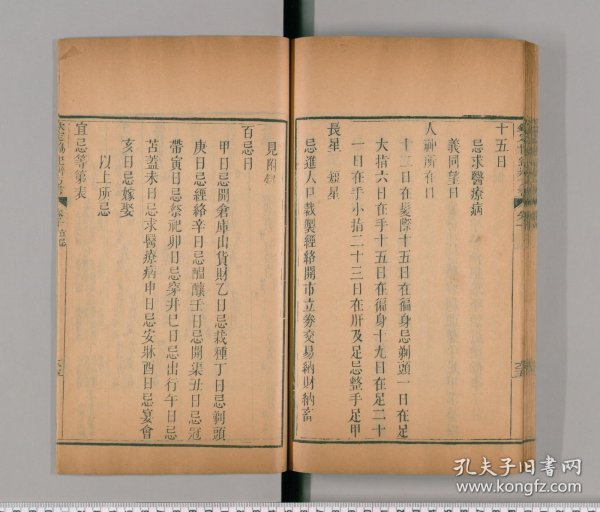 十五日
忌求醫療病
義同望日
人神所在日
十二日在髮際十五日在徧身忌剃頭一日在足
大指六日在手十五日在徧身十九日在足二十
一日在手小指二十三日在肝及足忌整手足甲
長星 短星
忌進人口裁製經絡開市立券交易納財納畜
見附錄
百忌日
甲日忌開倉庫出貨財乙日忌栽種丁日忌剃頭
庚日忌經絡辛日忌醞釀壬日忌開渠丑日忌冠
帶寅日忌祭祀卯日忌穿井巳日忌出行午日忌
苫蓋未日忌求醫療病申日忌安牀酉日忌宴會
亥日忌嫁娶
以上所忌
宜忌等第表
孔夫子旧书网
www.kongfz.com